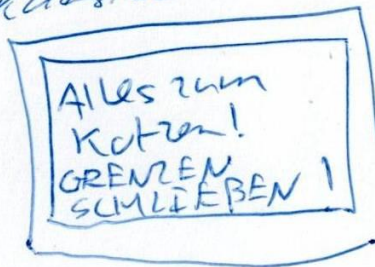 Alles zum
Kotzen!
GRENZEN
SCHLIEßEN!